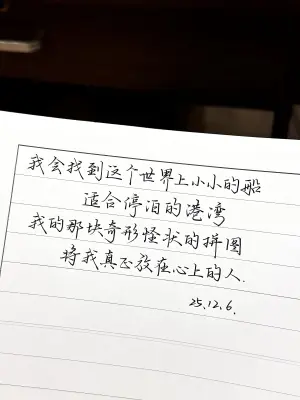 我会找到这个世界上小小的船
适合停泊的港湾
我的那块奇形怪状的拼图
将我真正放在心上的人.
25.12.6.